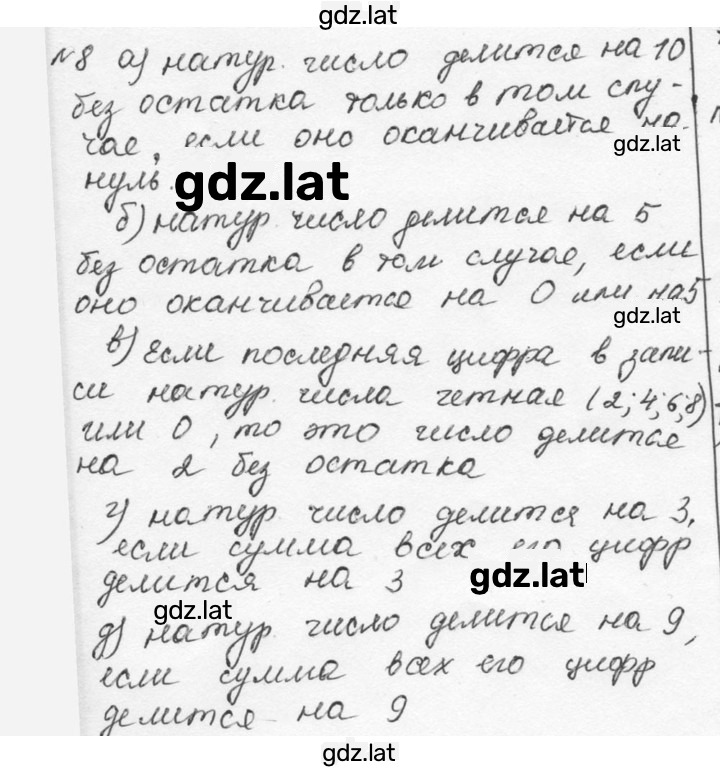 gdz.lat
№8 а) натур. число делится на 10
без остатка только в том слу-
чае, если оно оканчивается на
gdz.lat
нуль.
gdz.lat
б) натур. число делится на 5
без остатка в том случае, если
оно оканчивается на 0 или на 5
gdz.lat
в) Если последняя цифра в запи-
си натур. числа четная (2; 4; 6; 8)
или 0, то это число делится
на 2 без остатка
г) натур. число делится на 3,
если сумма всех его цифр
делится на 3
gdz.lat
gdz.lat
д) натур. число делится на 9,
если сумма всех его цифр
делится на 9
gdz.lat